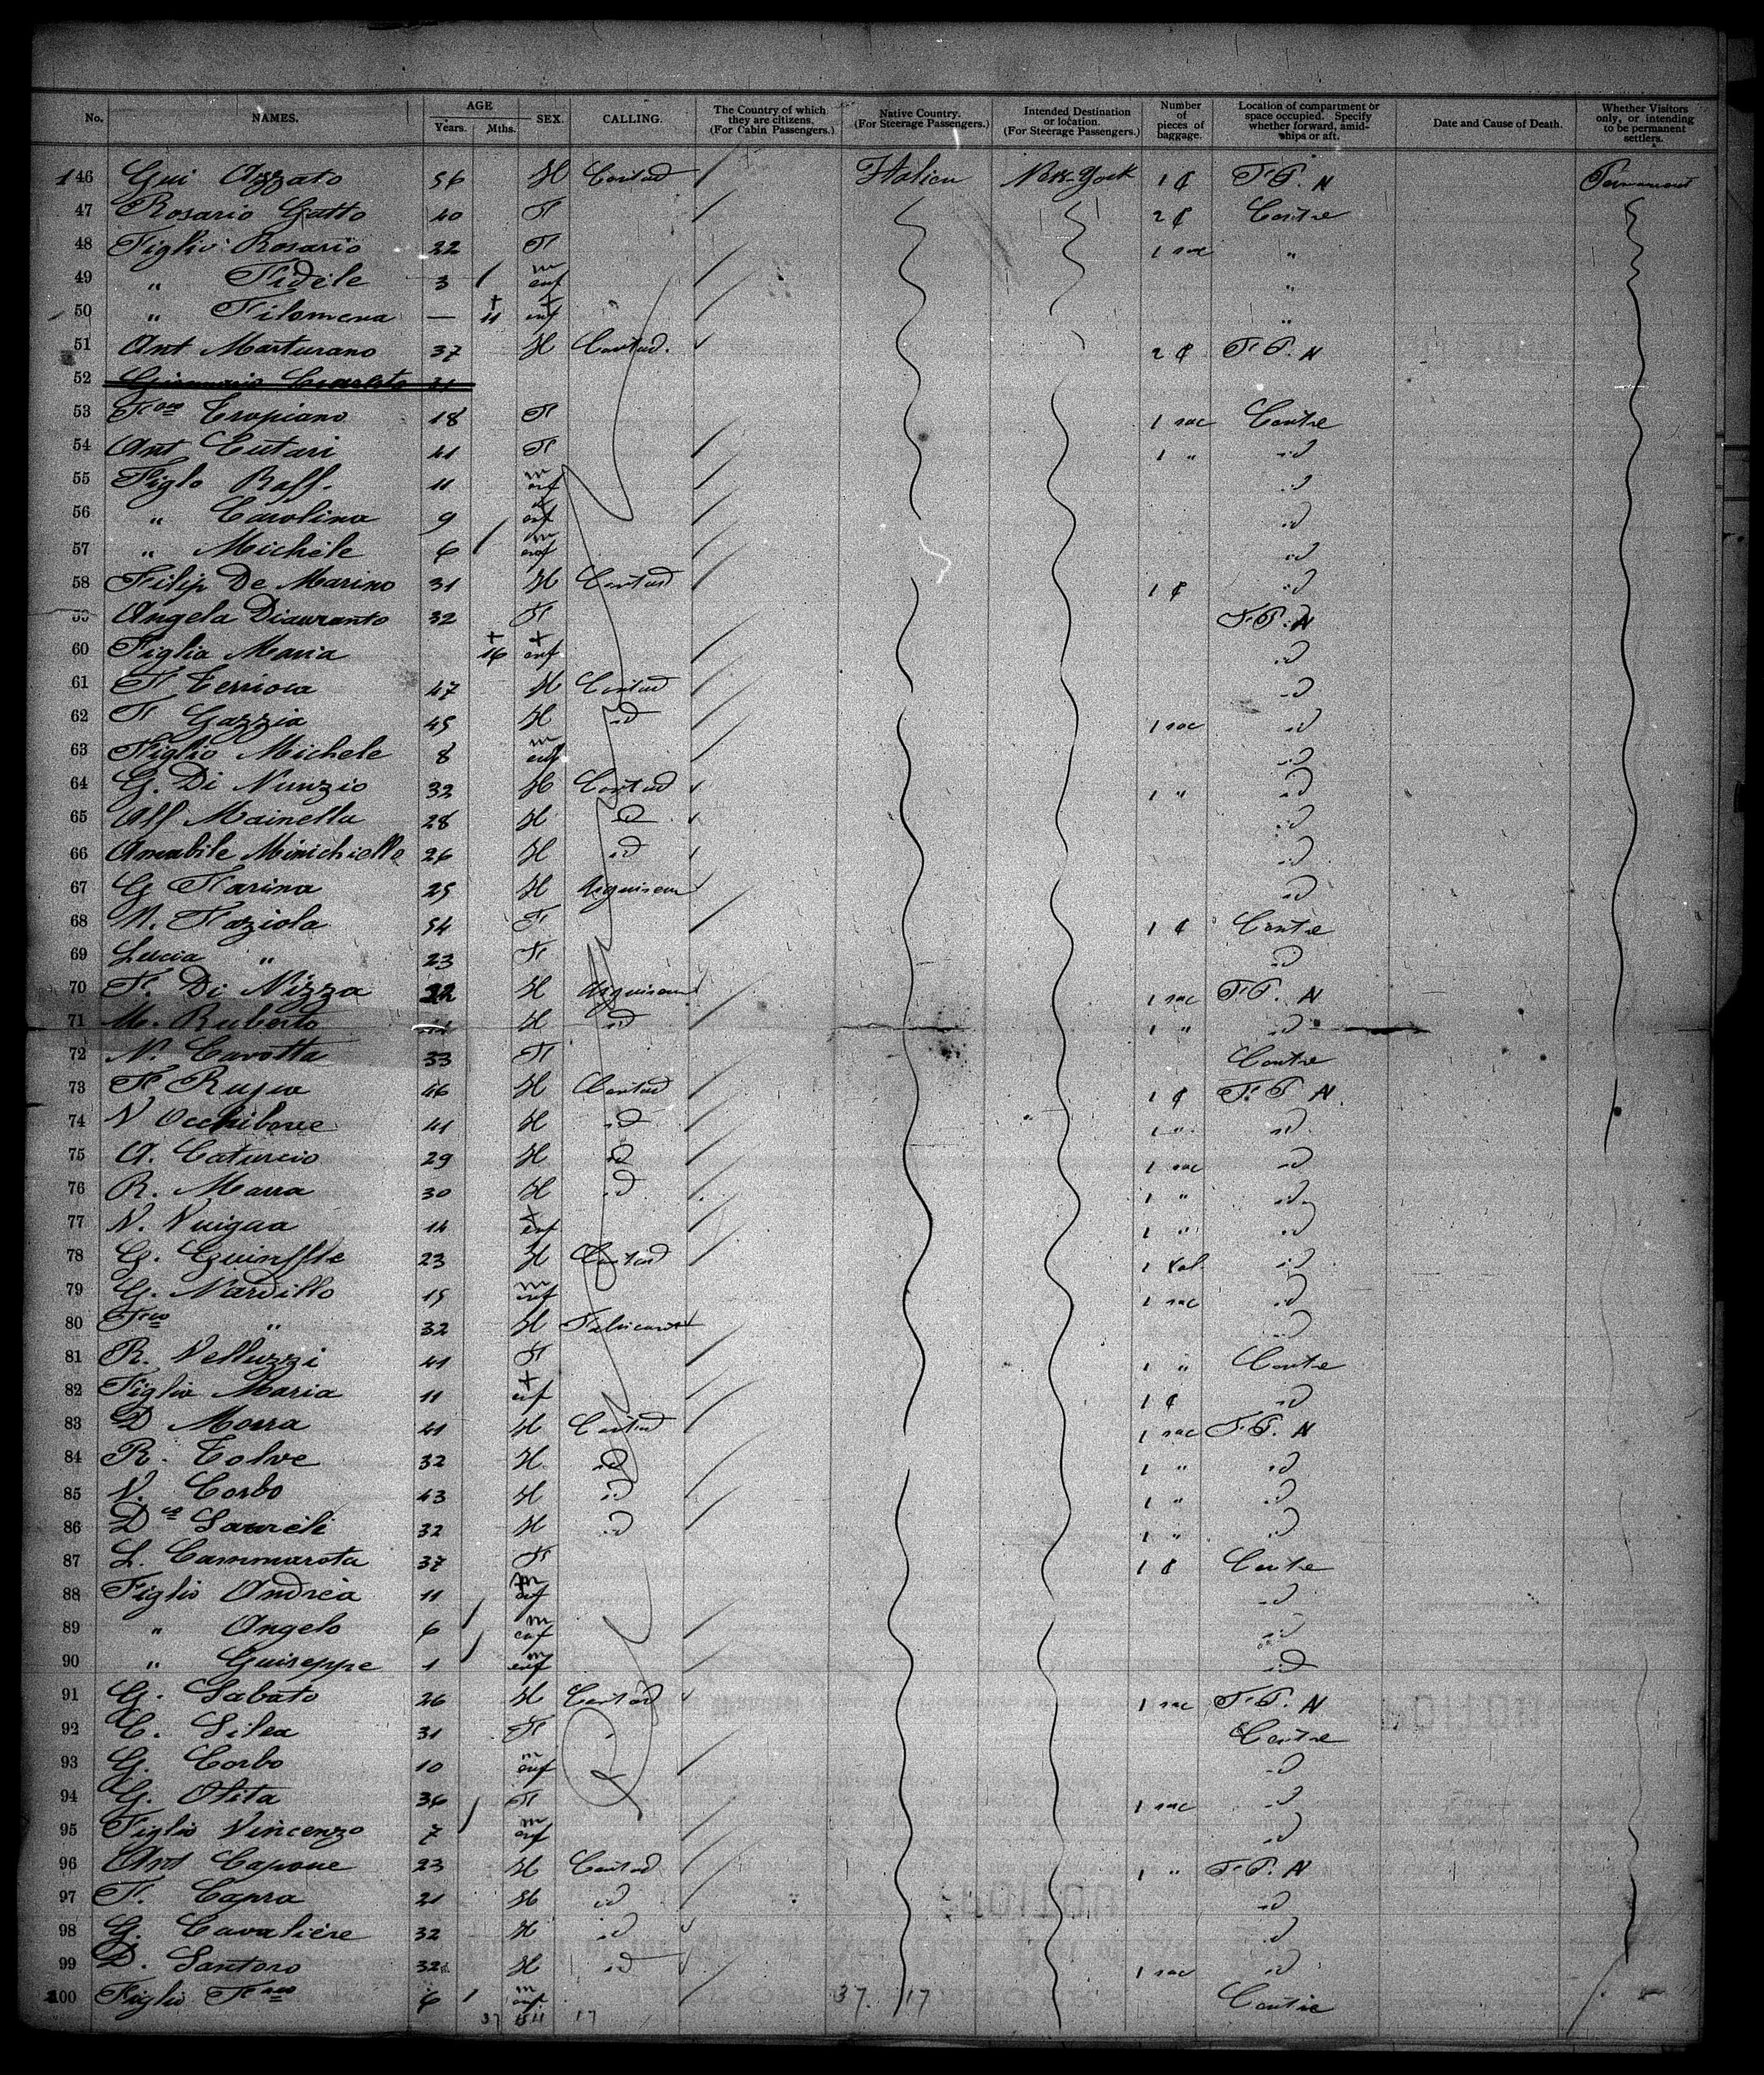 No. NAMES. AGE Years. Mths. SEX. CALLING. The Country of which they are citizens. (For Cabin Passengers.) Native Country. (For Steerage Passengers.) Intended Destination or location. (For Steerage Passengers.) Number of pieces of baggage. Location of compartment or space occupied. Specify whether forward, amidships or aft. Date and Cause of Death. Whether Visitors only, or intending to be permanent settlers.
146 Gui Azzato 56 H Contad Italien New-York 1 ¢ F.P. N Permanent
47 Rosario Gatto 40 F 2 ¢ Centre
48 Figlio Rosario 22 F 1 sac "
49 " Fidele 3 m enf "
50 " Filomena — 11 enf "
51 Ant Marturano 37 H Contad. 2 ¢ F.P. N
52
53 Fco Tropiano 18 F 1 sac Centre
54 Ant Cutari 41 F 1 " id
55 Figlo Raff. 11 m enf id
56 " Carolina 9 enf id
57 " Michele 6 m enf id
58 Filip De Marino 31 H Contad 1 ¢ id
59 Angela 32 F F.P. N
60 Figlia Maria 16 enf id
61 F 47 H Contad id
62 F Gazzia 45 H id 1 sac id
63 Figlio Michele 8 m enf id
64 G. Di Nunzio 32 H Contad 1 " id
65 Alf Mainella 28 H id id
66 Amabile Minichiello 26 H id id
67 G Farina 25 H id
68 N. Faziola 54 F 1 ¢ Centre
69 Lucia " 23 F id
70 F. Di Nizza 32 H 1 sac F.P. N
71 M. Ruberto H id 1 " id
72 N. Cavotta 33 F Centre
73 F 46 H Contad 1 ¢ F.P. N.
74 N Occhibove 41 H id 1 " id
75 A. Caturcio 29 H id 1 sac id
76 R. Marra 30 H id 1 " id
77 N. 14 enf 1 " id
78 G. 23 H Contad 1 Val. id
79 G. Nardillo 15 m enf 1 sac id
80 Fco " 32 H Fabricant id
81 R. Velluzzi 41 F 1 " Centre
82 Figlia Maria 11 enf 1 ¢ id
83 D Morra 41 H Contad 1 sac F.P. N
84 R. Tolve 32 H id 1 " id
85 V. Corbo 43 H id 1 " id
86 Dco Laureli 32 H id 1 " id
87 L. Cammarota 37 F 1 ¢ Centre
88 Figlio Andrea 11 m enf id
89 " Angelo 6 m enf id
90 " Guiseppe 1 m enf id
91 G. Sabato 26 H Contad 1 sac F.P. N
92 C. Silea 31 F Centre
93 G. Corbo 10 m enf id
94 G. Olita 36 F 1 sac id
95 Figlio Vincenzo 7 m enf id
96 Ant Capone 23 H Contad 1 " F.P. N
97 F. Capra 21 H id id
98 G. Cavaliere 32 H id id
99 D. Santoro 32 H id 1 sac id
200 Figlio Fco 6 m enf 37 17 Centre
37 11 17